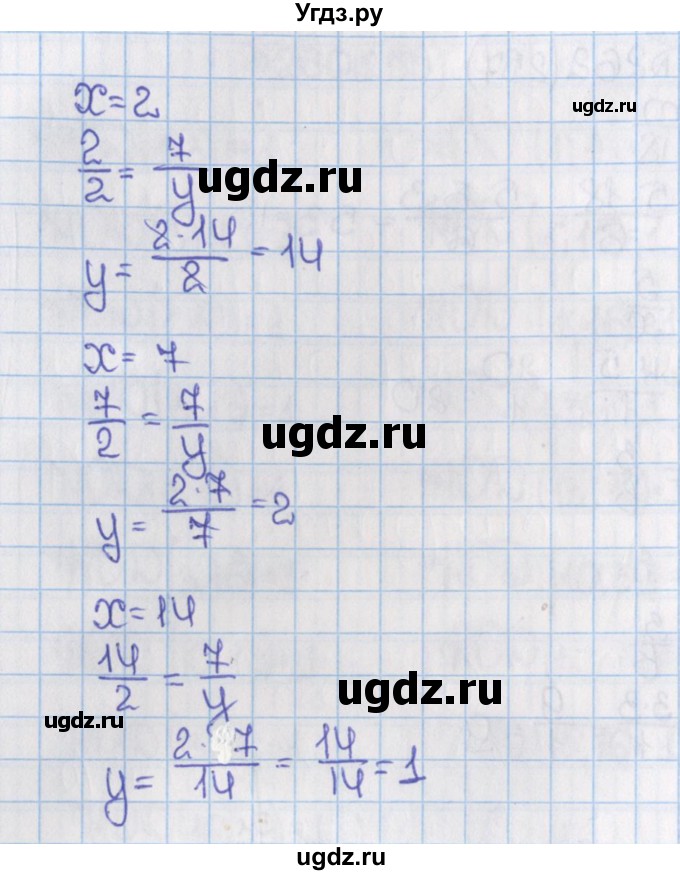 Угдз.ру
ugdz.ru
x=2
2/2 = 7/y
ugdz.ru
y = 2·14/2 = 14
x= 7
7/2 = 7/y
ugdz.ru
y = 2·7/7 = 2
x=14
14/2 = 7/y
ugdz.ru
ugdz.ru
y = 2·7/14 = 14/14 = 1
ugdz.ru